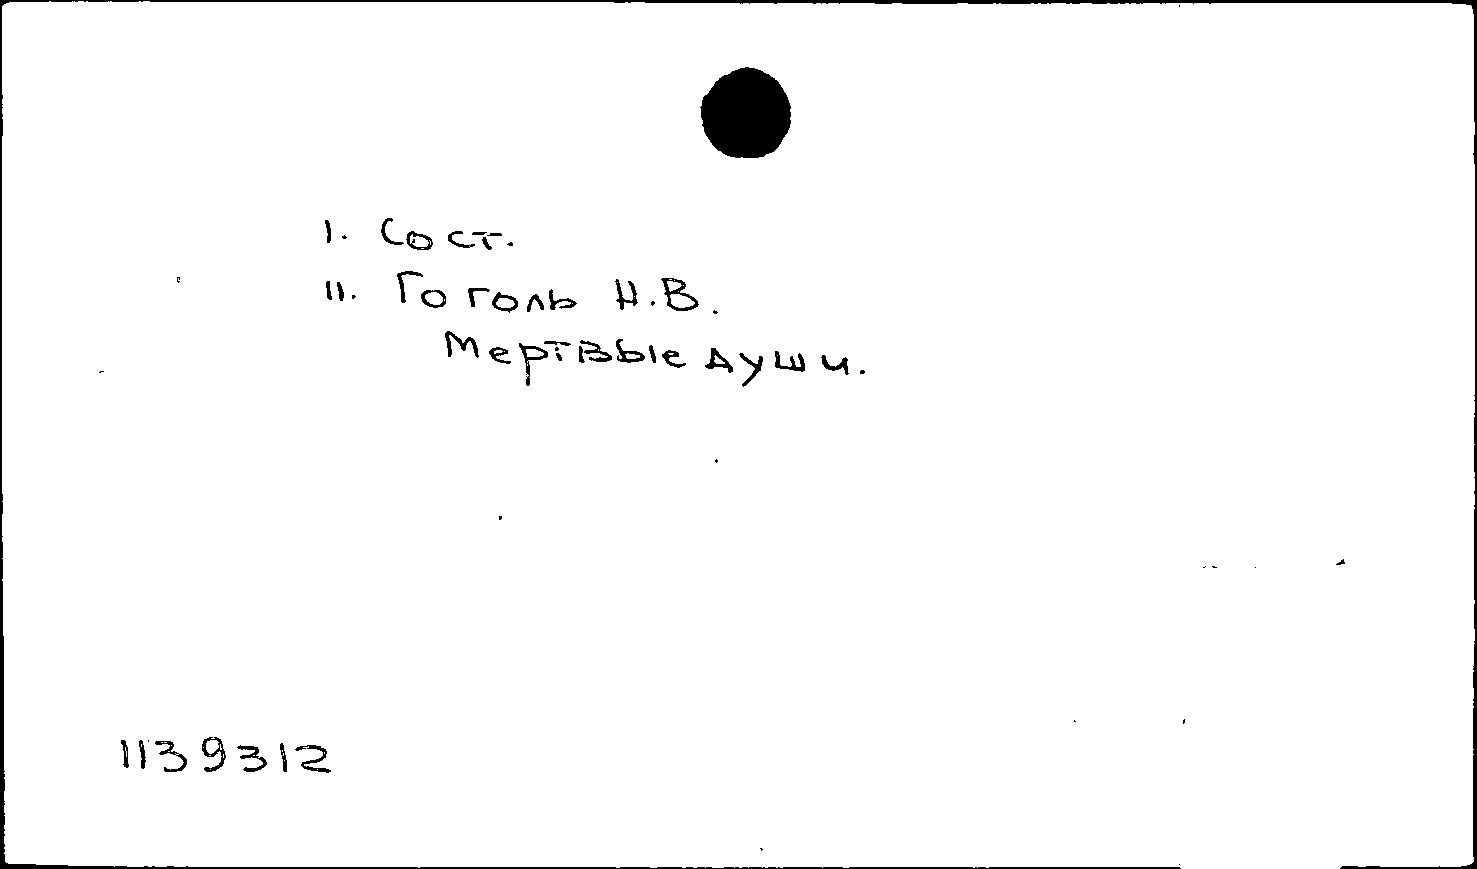 I. Сост.
II. Гоголь Н.В.
Мертвые души.
1139312